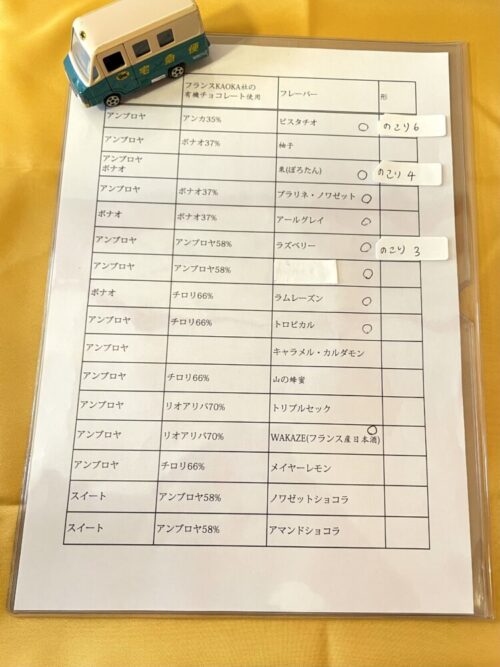 宅急便
フランスKAOKA社の
有機チョコレート使用 フレーバー 形
アンブロヤ アンカ35% ピスタチオ ○ のこり6
アンブロヤ ボナオ37% 柚子
アンブロヤ
ボナオ 栗(ぽろたん) ○ のこり4
アンブロヤ ボナオ37% プラリネ・ノワゼット ○
ボナオ ボナオ37% アールグレイ ○
アンブロヤ アンブロヤ58% ラズベリー ○ のこり3
アンブロヤ アンブロヤ58% ○
ボナオ チロリ66% ラムレーズン ○
アンブロヤ チロリ66% トロピカル ○
アンブロヤ キャラメル・カルダモン
アンブロヤ チロリ66% 山の蜂蜜
アンブロヤ リオアリバ70% トリプルセック
アンブロヤ リオアリバ70% WAKAZE(フランス産日本酒) ○
アンブロヤ チロリ66% メイヤーレモン
スイート アンブロヤ58% ノワゼットショコラ
スイート アンブロヤ58% アマンドショコラ